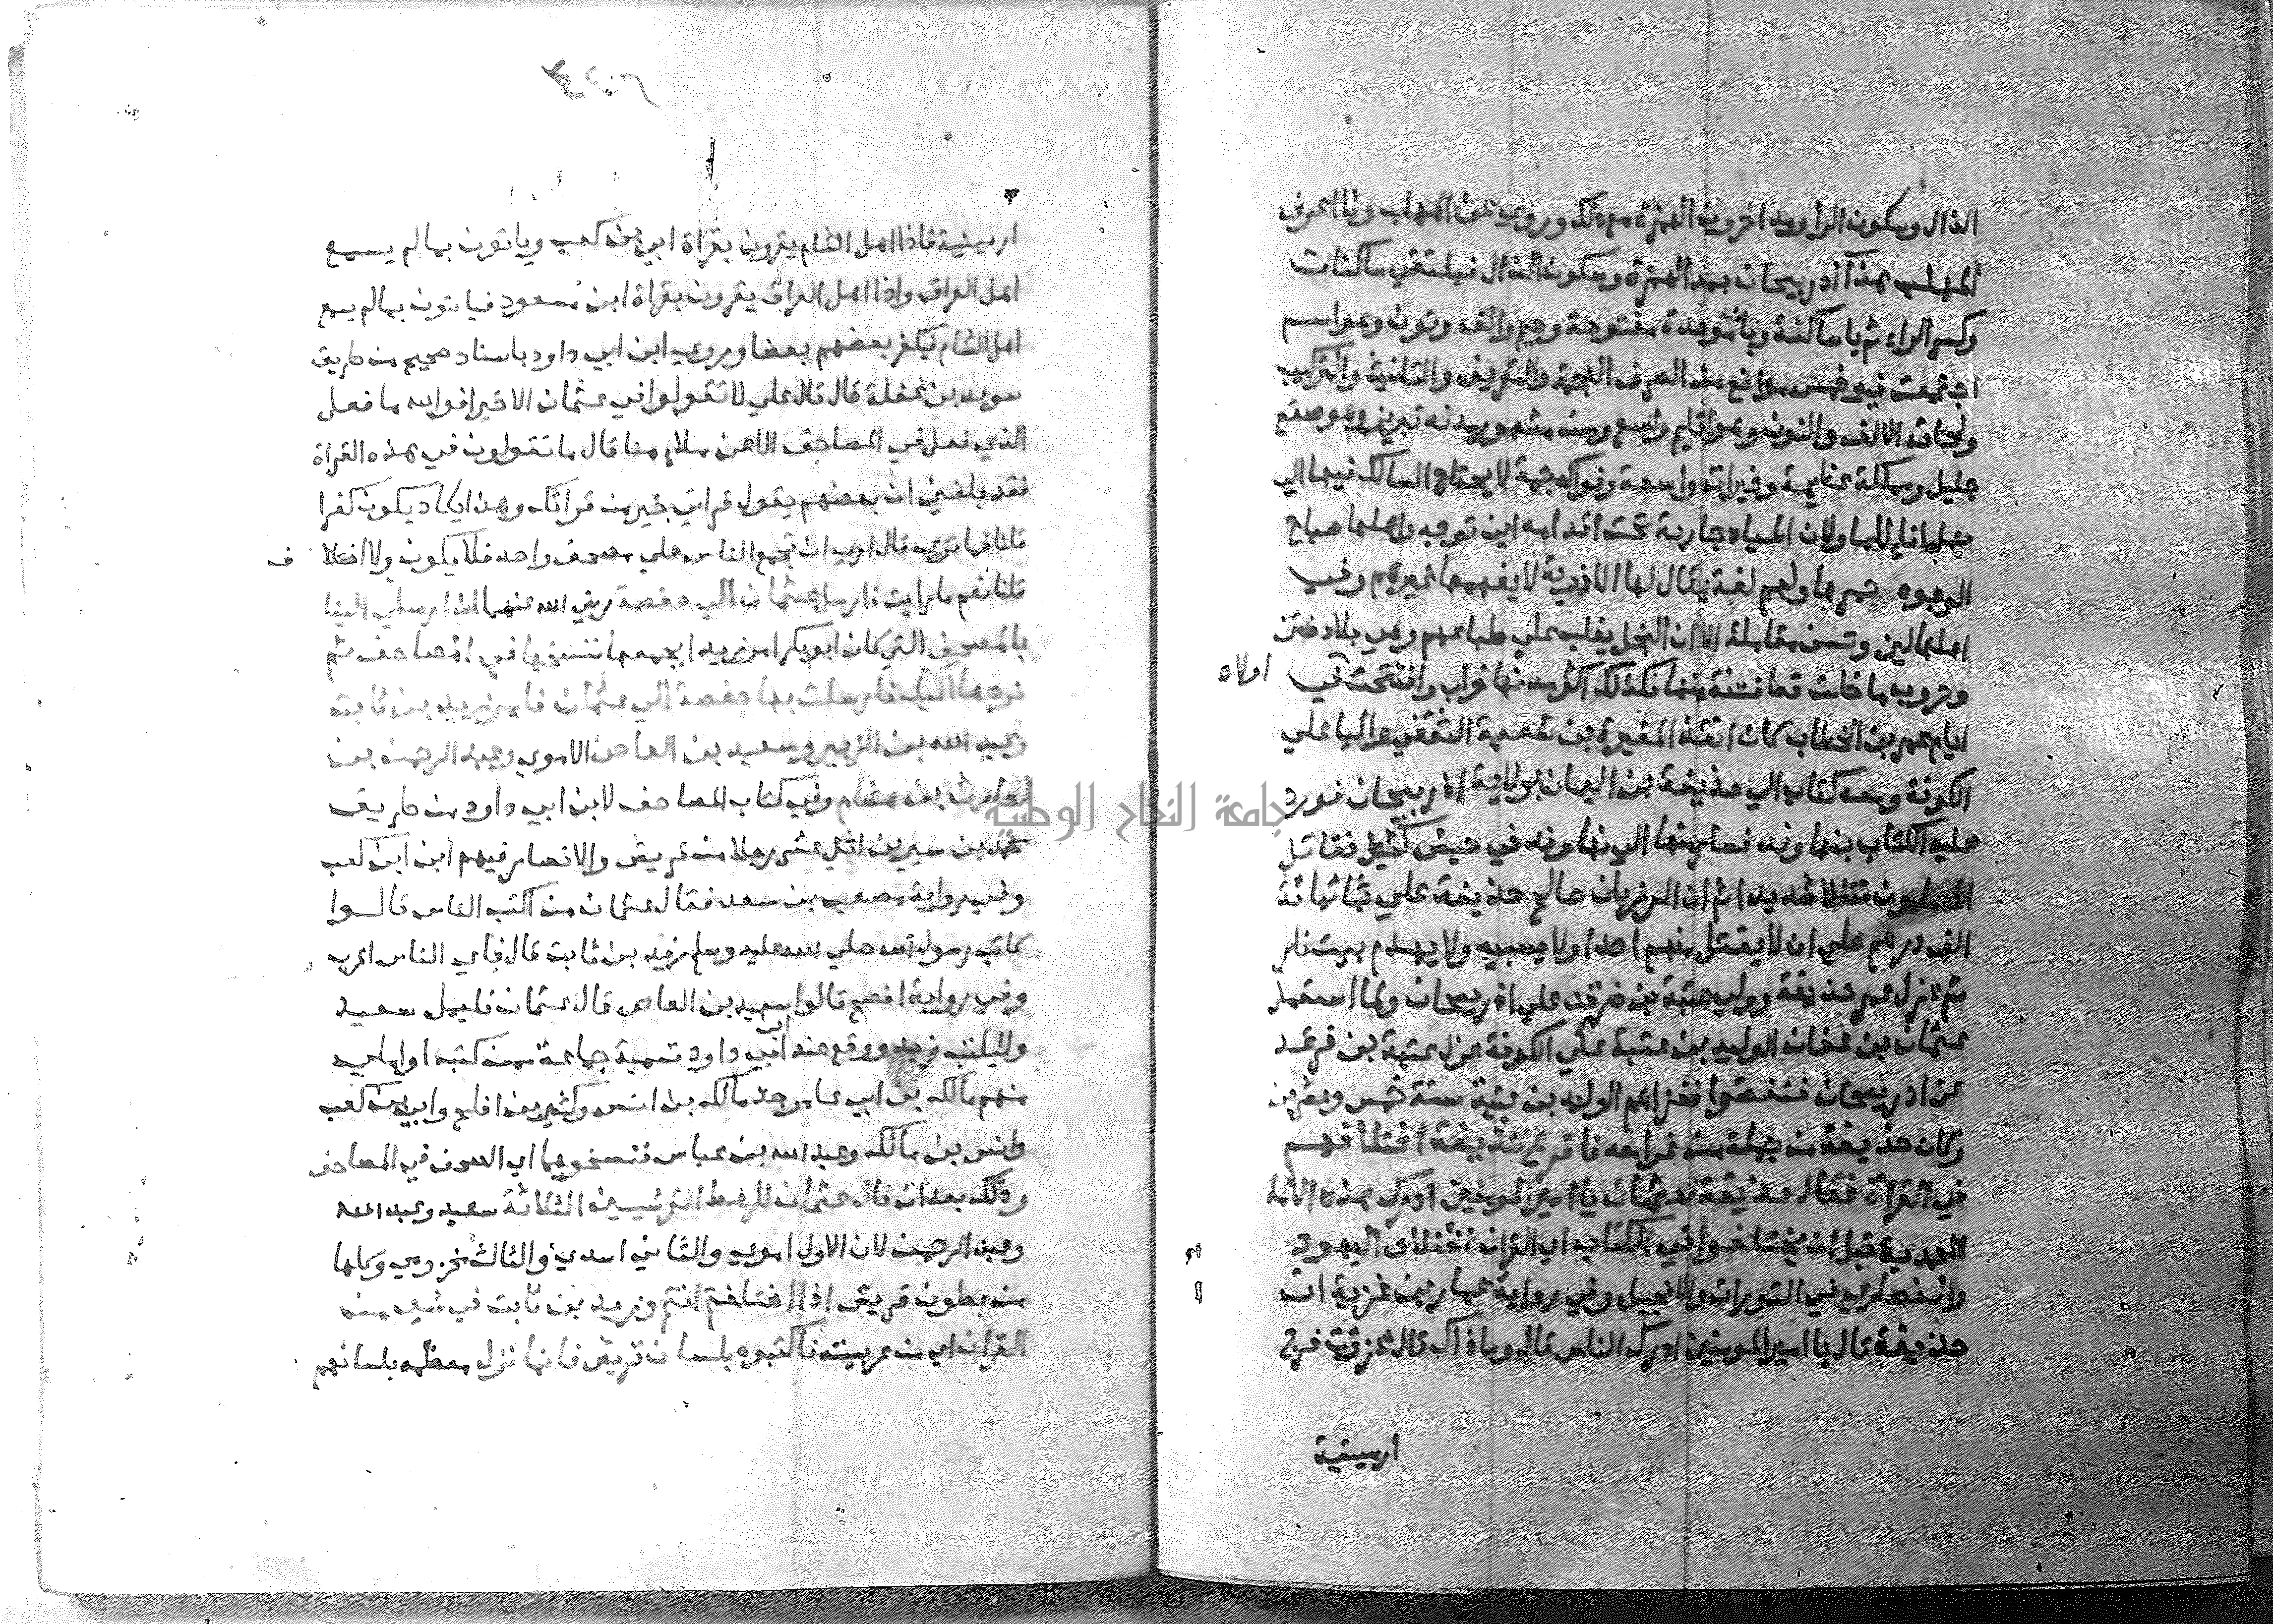 الذال وسكون الراء ومد اخرون الهمزة مع ذلك وروي عن المهلب ولا اعرف
المهلب هذا آذربيجان بمد الهمزة وسكون الذال فيلتقي ساكنات
وكسر الراء ثم يا ساكنة وبا موحدة مفتوحة وجيم والف ونون وهو اسم
اجتمعت فيه خمس موانع من الصرف العجمة والتعريف والتانيث والتركيب
ولحاق الالف والنون وهو اقليم واسع ومن مشهور مدنه تبريز وهو صقع
جليل ومملكة عظيمة وخيرات واسعة وفواكه جمة لا يحتاج السالك فيها الي
حمل انا للما ولان المياه جارية تحت اقدامه اين توجه واهلها صباح
الوجوه حمرها ولهم لغة يقال لها الاذرية لا يفهمها غيرهم وفي
اهلها لين وحسن معاملة الا ان البخل يغلب علي طباعهم وهي بلاد فتن
وحروب ما خلت قط فتنة منها فكذلك اكثر مدنها خراب وافتتحت في
اولاه
ايام عمر بن الخطاب كان انفذ المغيرة بن شعبة الثقفي واليا علي
الكوفة ومعه كتاب الي حذيفة بن اليمان بولاية اذربيجان فورد
عليه الكتاب بنهاوند فسار منها الي نهاوند في جيش كثيف فقاتل
المسلمون قتالا شديدا ثم ان المرزبان صالح حذيفة علي ثمانمائة
الف درهم علي ان لا يقتل منهم احدا ولا يسبيه ولا يهدم بيت نار
ثم عزل عمر حذيفة وولي عتبة بن فرقد علي اذربيجان ولما استعمل
عثمان بن عفان الوليد بن عتبة علي الكوفة عزل عتبة بن فرقد
عن اذربيجان فنقضوا فغزاهم الوليد بن عقبة سنة خمس وعشرين
وكان حذيفة من جملة من غزا معه فافزع حذيفة اختلافهم
في القراة فقال حذيفة لعثمان يا امير المومنين ادرك هذه الامة
المحمدية قبل ان يختلفوا في الكتاب اي القران اختلاف اليهود
والنصاري في التورات والانجيل وفي رواية عمارة بن غزية ان
حذيفة قال يا امير المومنين ادرك الناس قال وما ذاك قال غزوت فرج
ارمينية
ارمينية فاذا اهل الشام يقرون بقراة ابي بن كعب وياتون بما لم يسمع
اهل العراق واذا اهل العراق يقرون بقراة ابن مسعود فياتون بما لم يسمع
اهل الشام فيكفر بعضهم بعضا وروي ابن ابي داود باسناد صحيح من طريق
سويد بن غفلة قال قال علي لا تقولوا في عثمان الا خيرا فوالله ما فعل
الذي فعل في المصاحف الا عن ملاء منا قال ما تقولون في هذه القراة
فقد بلغني ان بعضهم يقول قراتي خير من قراتك وهذا يكاد يكون كفرا
قلنا فما تري قال اري ان نجمع الناس علي مصحف واحد فلا يكون ولا اختلا
ف
قلنا نعم ما رايت فارسل عثمان الي حفصة رضي الله عنهما ان ارسلي الينا
بالمصحف التي كان ابو بكر امر زيدا بجمعها ننسخها في المصاحف ثم
نردها اليك فارسلت بها حفصة الي عثمان فامر زيد بن ثابت
وعبد الله بن الزبير وسعيد بن العاص الاموي وعبد الرحمن بن
الحارث بن هشام وفي كتاب المصاحف لابن ابي داود من طريق
محمد بن سيرين اثني عشر رجلا من قريش والانصار فيهم ابن ابن كعب
وفي رواية مصعب بن سعد فقال عثمان من اكتب الناس قالوا
كاتب رسول الله صلي الله عليه وسلم زيد بن ثابت قال فاي الناس اعرب
وفي رواية افصح قالوا سعيد بن العاص قال عثمان فليمل سعيد
وليكتب زيد ووقع عند ابن ابي داود تسمية جماعة ممن كتب او املي
منهم مالك بن ابي عامر جد مالك بن انس وكثير بن افلح وابي بن كعب
وانس بن مالك وعبد الله بن عباس فنسخوها اي الصحف في المصاحف
وذلك بعد ان قال عثمان للرهط القرشيين الثلاثة سعيد وعبد الله
وعبد الرحمن لان الاول اموي والثاني اسدي والثالث مخزومي وكلها
من بطون قريش اذا اختلفتم انتم وزيد بن ثابت في شي من
القران اي من عربيته فاكتبوه بلسان قريش فانما نزل معظمه بلسانهم
جامعة النجاح الوطنية